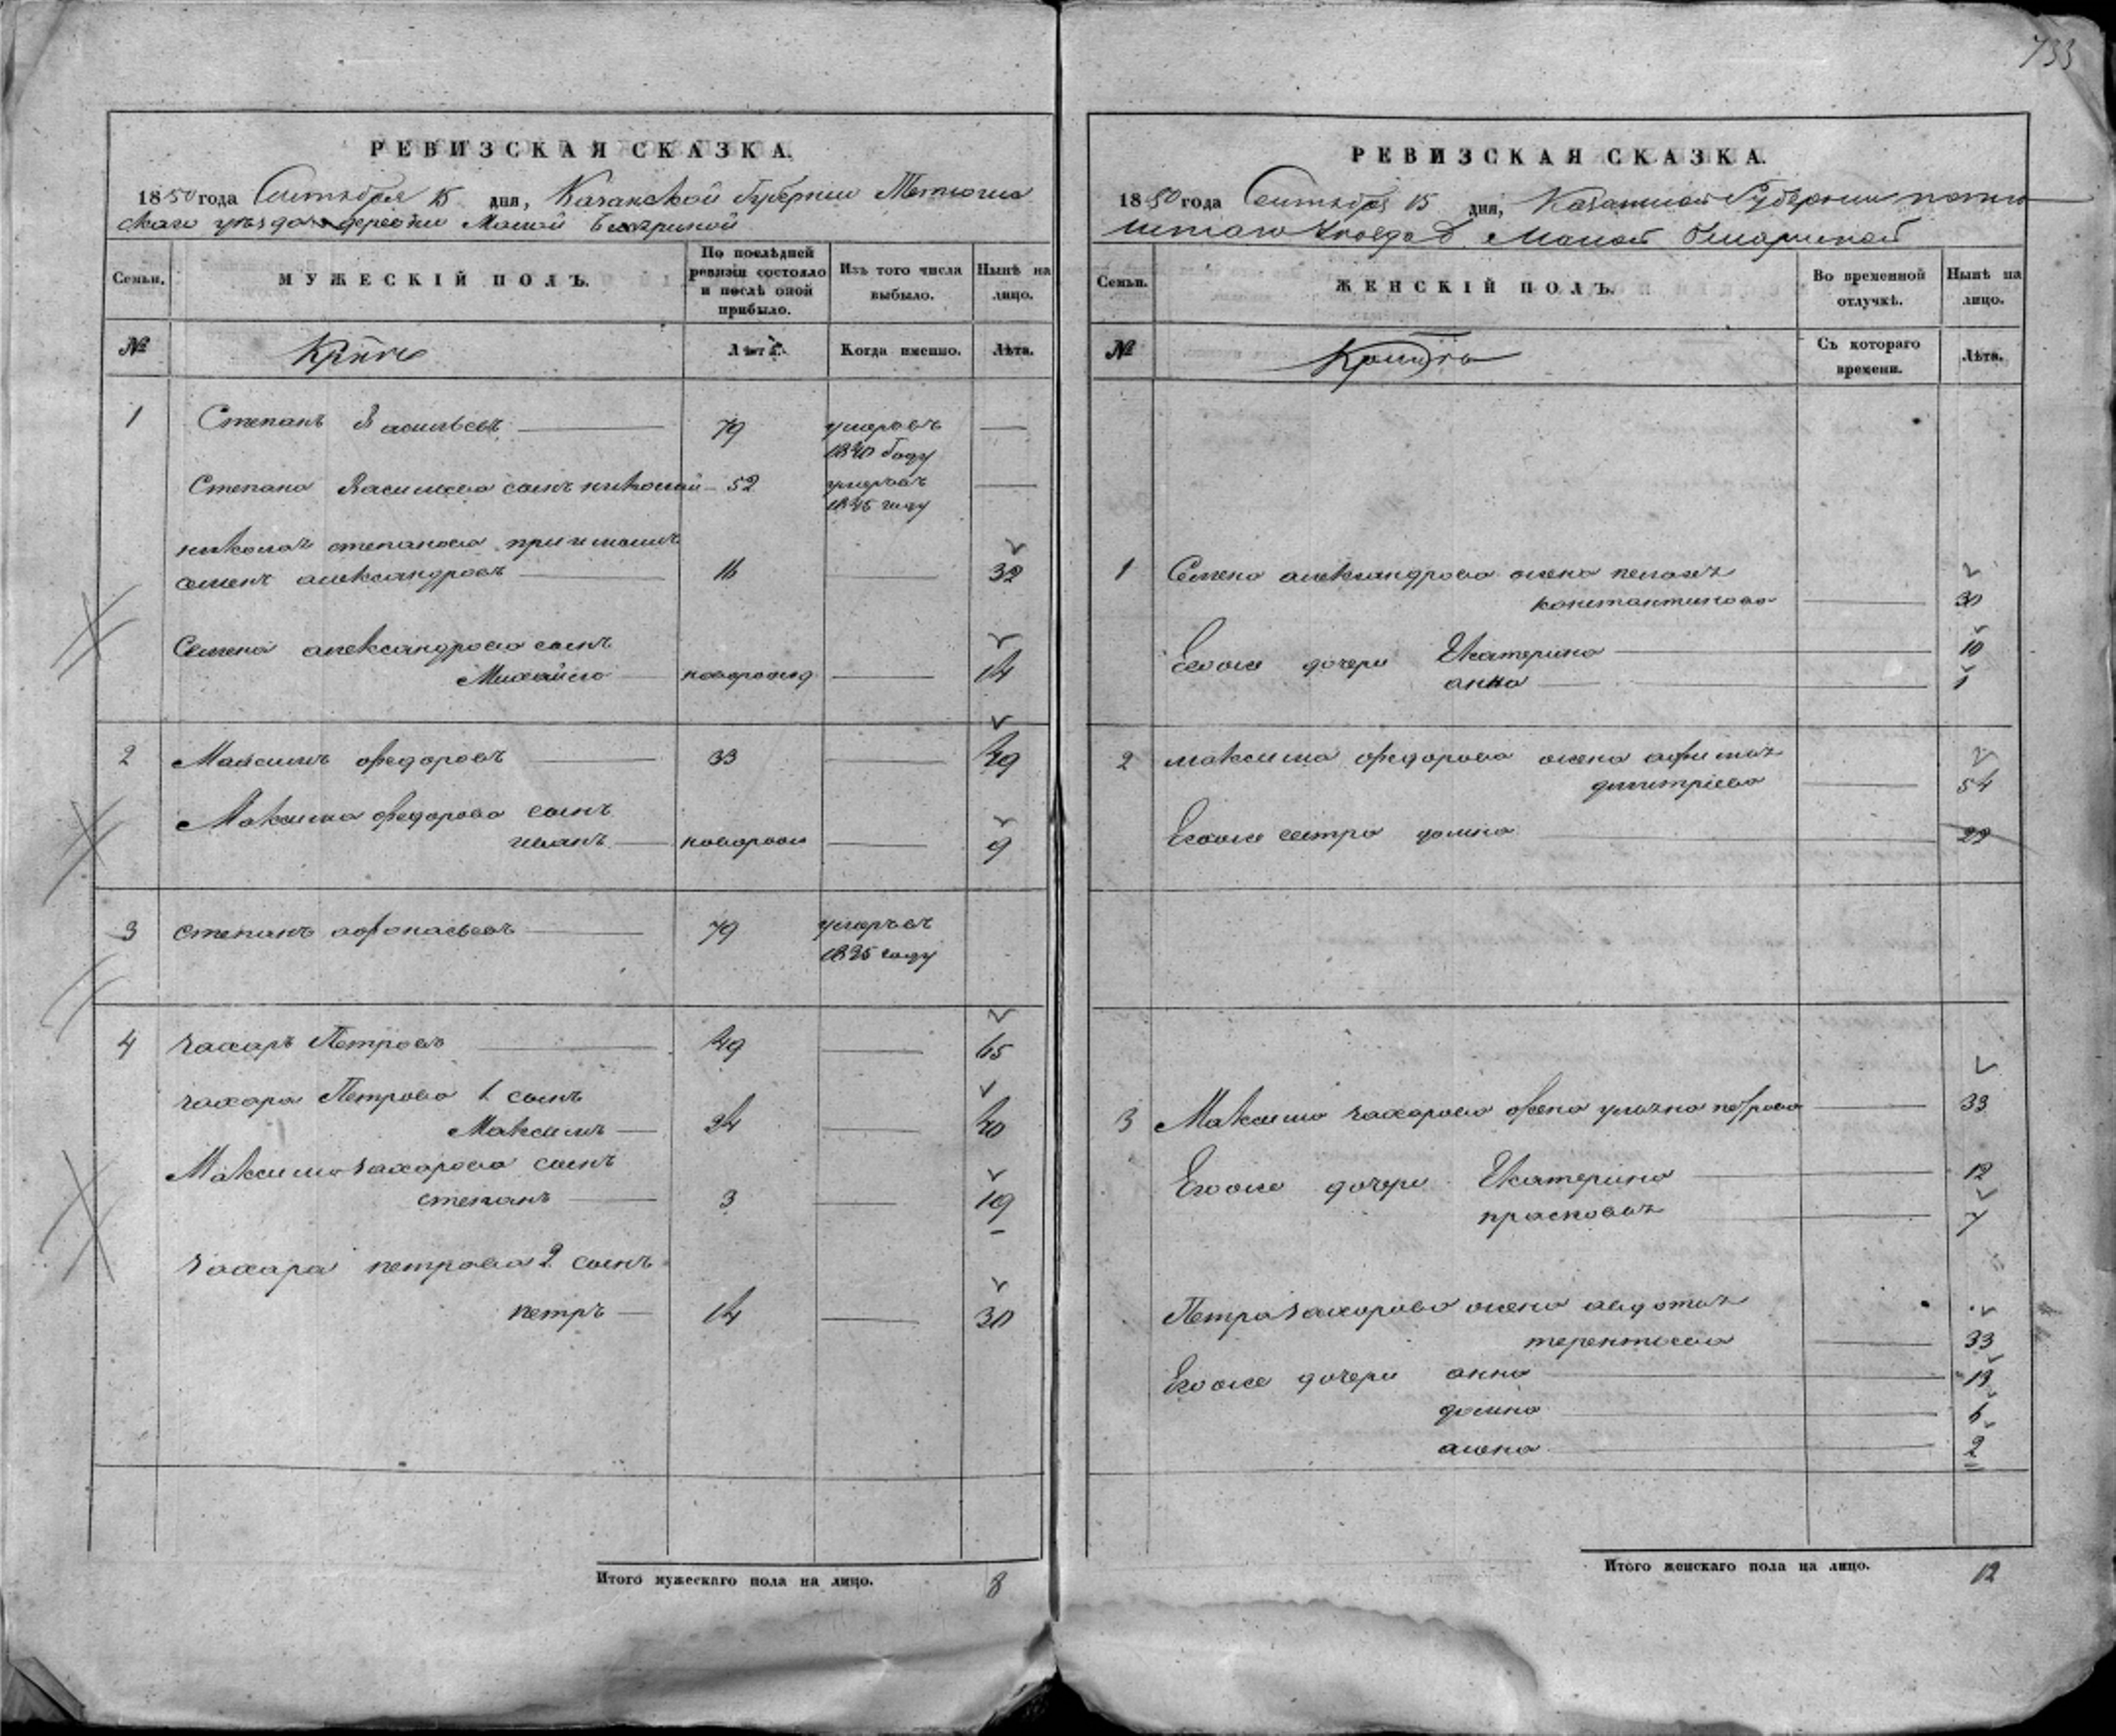 733
РЕВИЗСКАЯ СКАЗКА.
1850 года Сентября 15 дня, Казанской губернии Тетюшс
каго уѣзда деревни Малой
Семьи.
МУЖЕСКІЙ ПОЛЪ.
По послѣдней ревизіи состояло и послѣ оной прибыло.
Изъ того числа выбыло.
Нынѣ на лицо.
№
Лѣта.
Когда именно.
Лѣта.
1 Степанъ Васильевъ 79 умеръвъ —
1840 году
Степана Васильева сынъ николай 52 умеръвъ —
1845 году
николая степанова приимышъ
семенъ александровъ 16 — 32
Семена александрова сынъ
Михайло новорожд — 14
2 Максимъ федоровъ 33 — 49
Максима федорова сынъ
иванъ новорож — 9
3 степанъ афонасьевъ 79 умеръвъ
1835 году
4 захаръ Петровъ 49 — 65
захара Петрова 1 сынъ
Максимъ 24 — 40
Максима захарова сынъ
степанъ 3 — 19
захара петрова 2 сынъ
петръ 14 — 30
Итого мужескаго пола на лицо. 8
РЕВИЗСКАЯ СКАЗКА.
1850 года Сентября 15 дня, Казанской Губернии
уѣзда д. Малой
Семьи.
ЖЕНСКІЙ ПОЛЪ.
Во временной отлучкѣ.
Нынѣ на лицо.
№
Съ котораго времени.
Лѣта.
1 Семена александрова жена пелагея
константинова — 30
Егоже дочери Екатерина — 10
анна — 1
2 максима федорова жена афимья
дмитріева — 54
Егоже сестра домна — 29
3 Максима захарова жена петрова — 33
Егоже дочери Екатерина — 12
прасковья — 7
Петра захарова жена авдотья
терентьева — 33
Егоже дочери анна —
домна — 6
алена — 2
Итого женскаго пола на лицо. 12